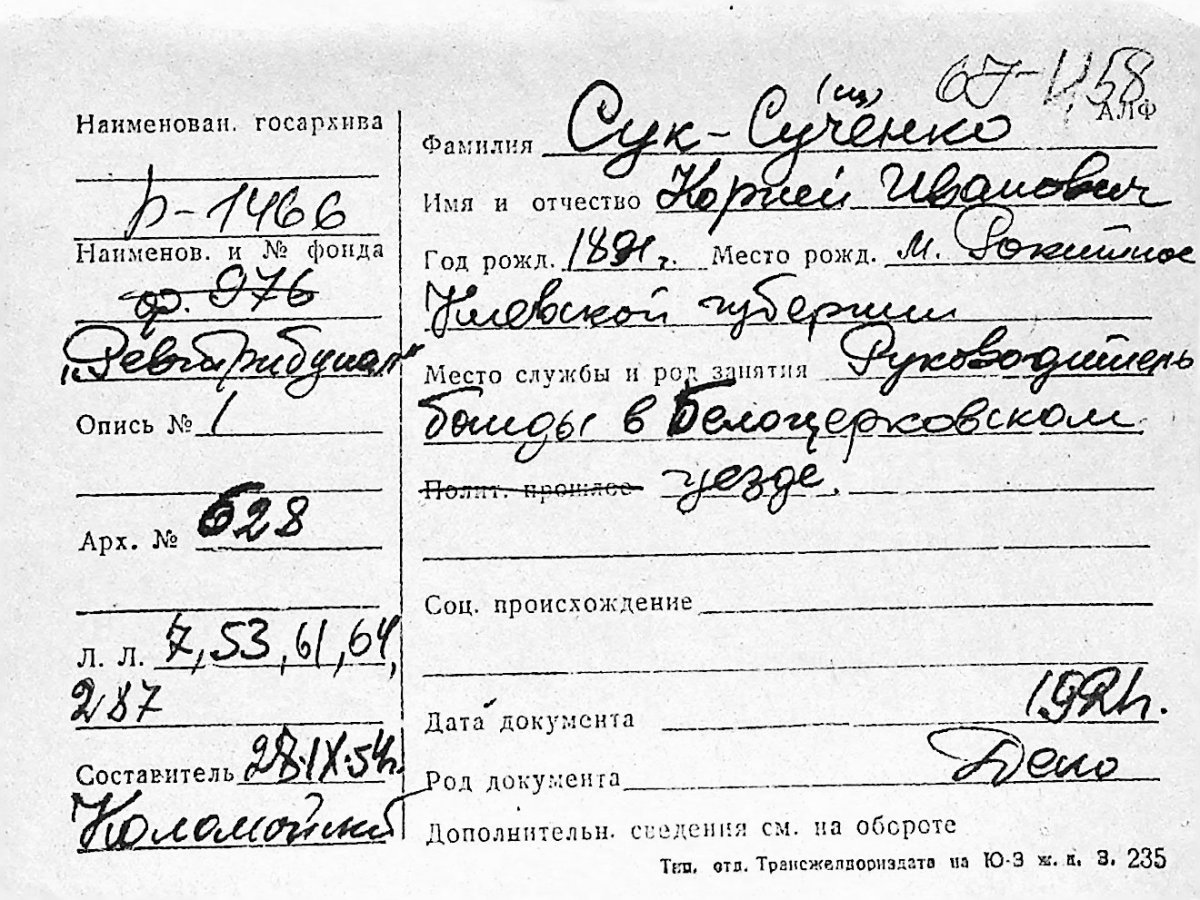 67-1158
АЛФ
Наименован. госархива
р-1466
Наименов. и № фонда
ф. 976
„Ревтрибунал"
Опись № 1
Арх. № 628
Л. Л. 7, 53, 61, 64,
287
Составитель 28.IX.54г.
Коломойский
(щ)
Фамилия Сук-Сученко
Имя и отчество Корней Иванович
Год рожд. 1891г. Место рожд. м. Рокитное
Киевской губернии
Место службы и род занятия Руководитель
банды в Белоцерковском
Полит. прошлое уезде.
Соц. происхождение
Дата документа 1921г.
Род документа Дело
Дополнительн. сведения см. на обороте
Тип. отд. Трансжелдориздата на Ю-З ж. д. З. 235